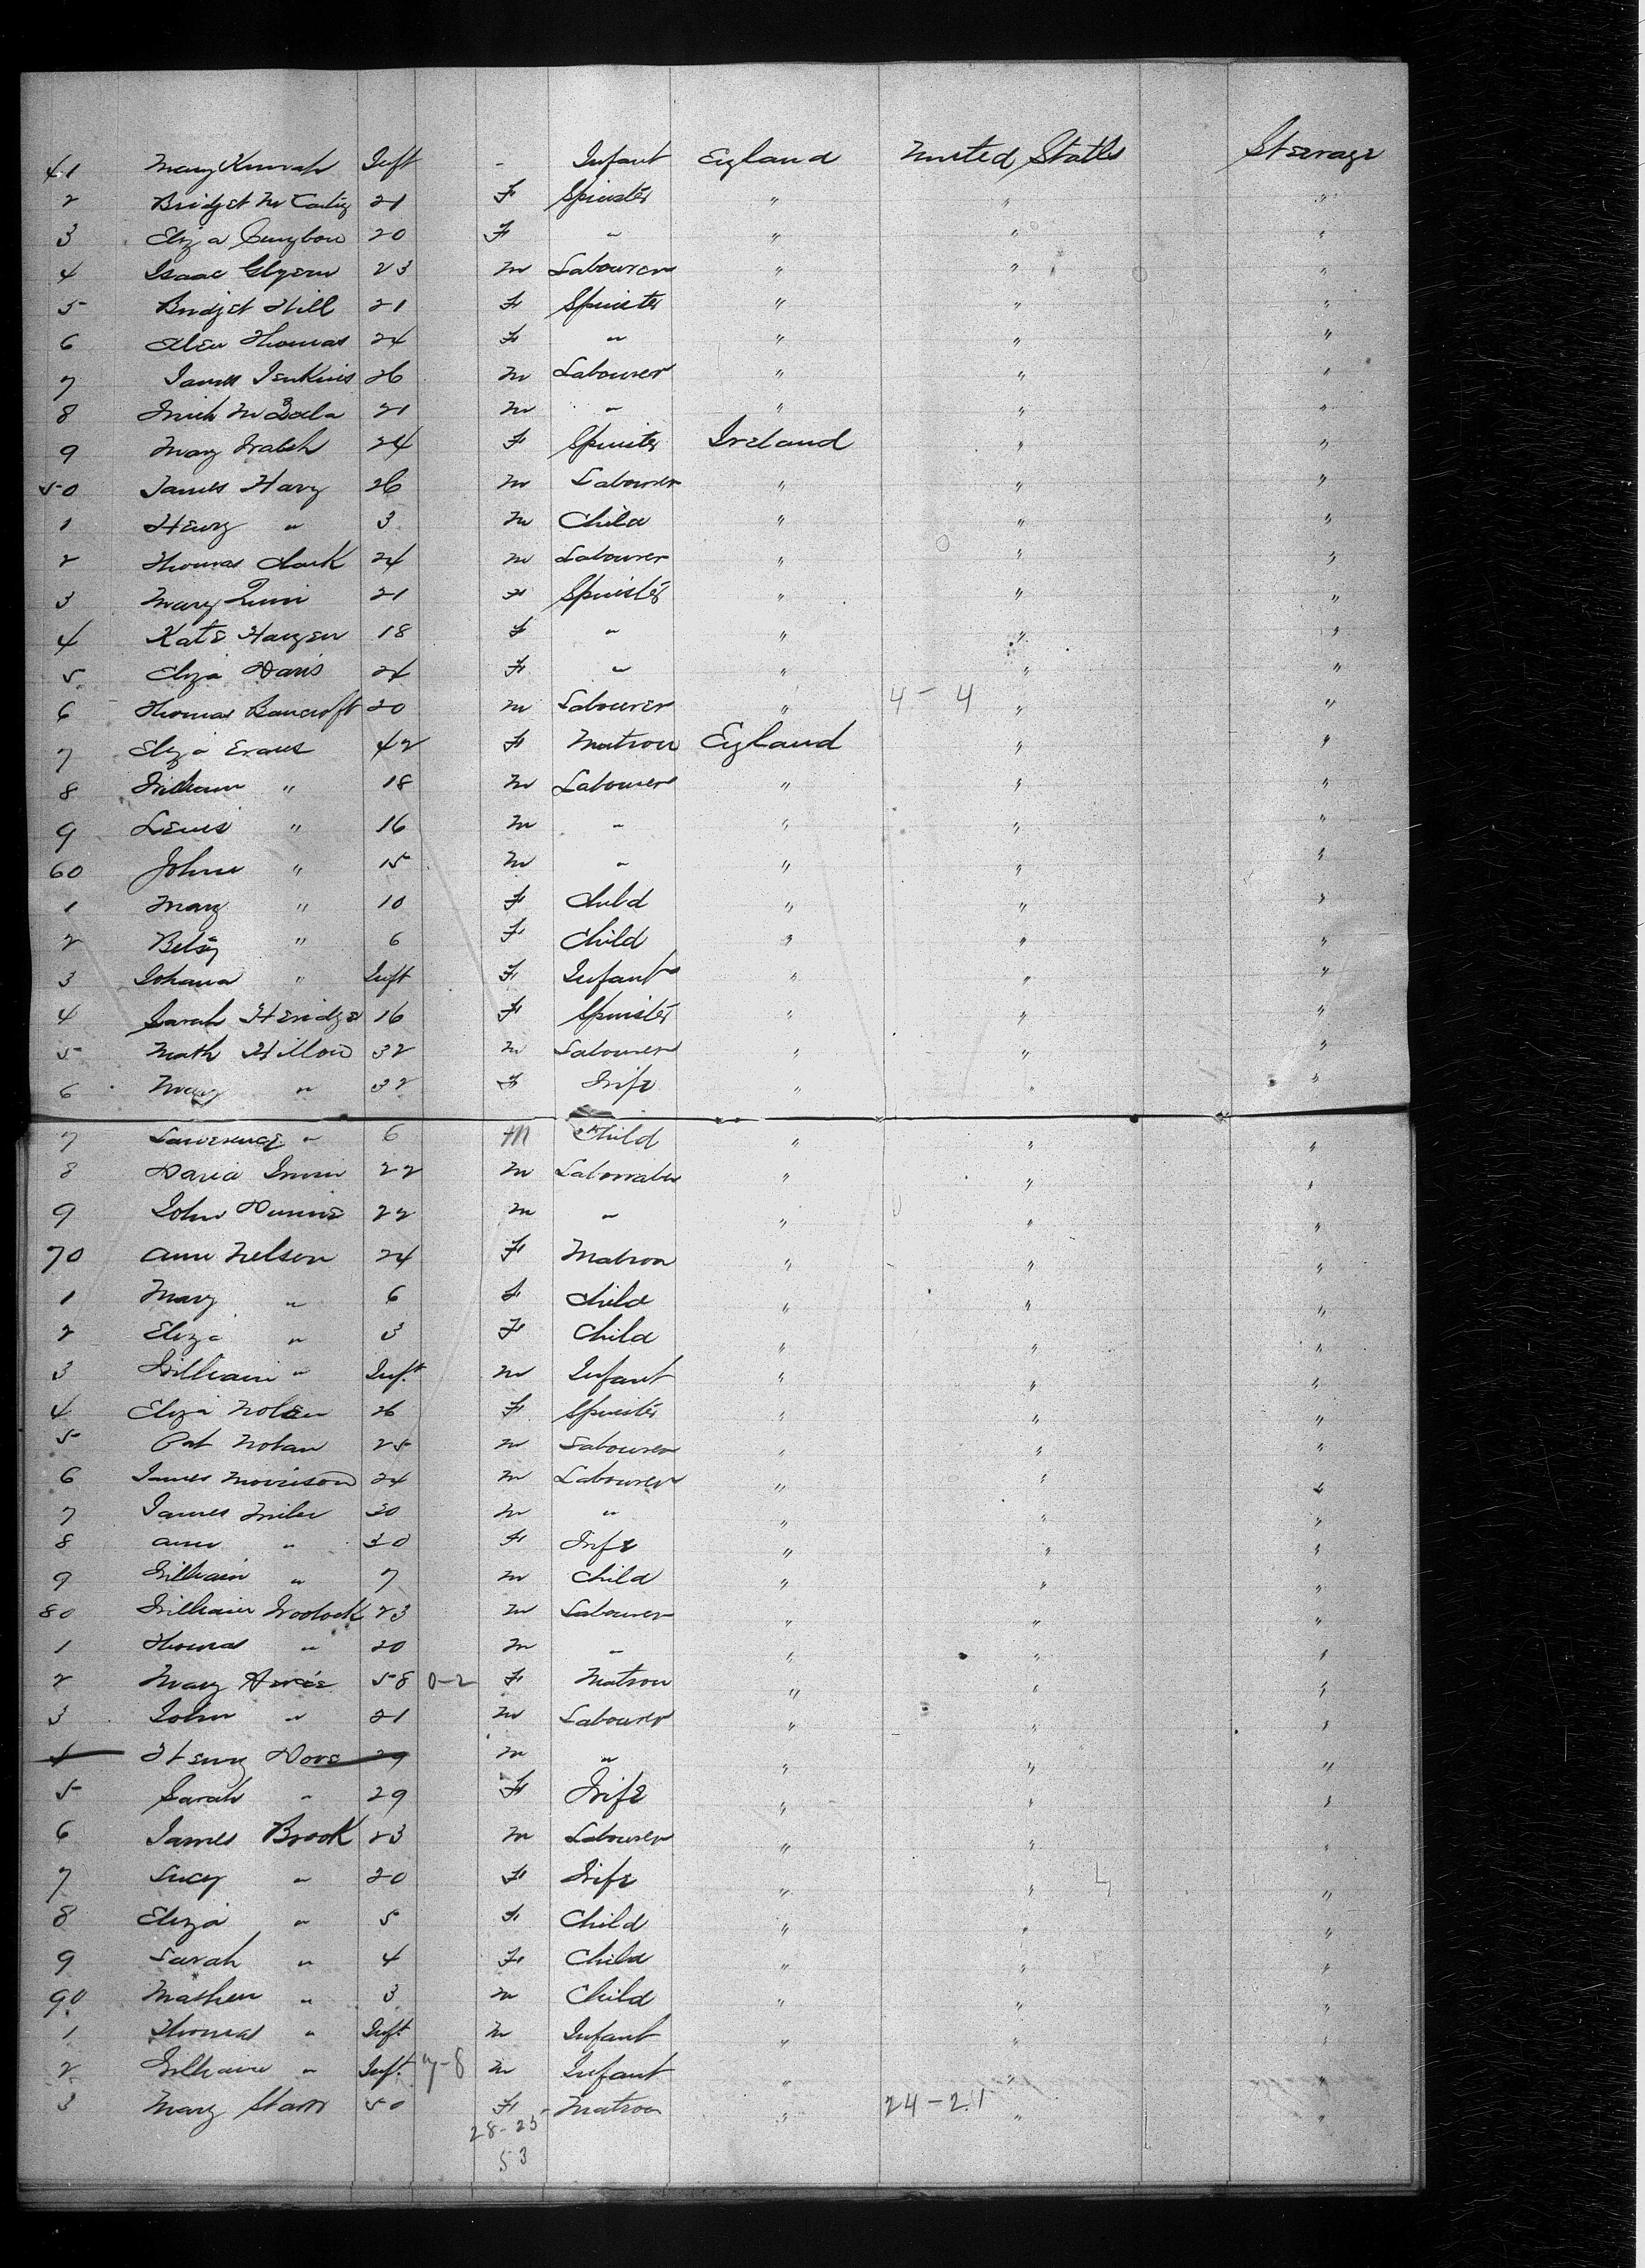 41 Mary Inft - Infant England United States Steerage
2 Bridget McCarty 21 F Spinster " " "
3 Eliza 20 F " " " "
4 Isaac Glyenn 23 M Labourer " " "
5 Bridget Hill 21 F Spinster " " "
6 Thomas 24 F " " " "
7 James Jenkins 26 M Labourer " " "
8 21 M " " " "
9 Mary Walsh 24 F Spinster Ireland " "
50 James Harvy 26 M Labourer " " "
1 Henry " 3 M Child " " "
2 Thomas Clark 24 M Labourer " " "
3 Mary Quinn 21 F Spinster " " "
4 Kate 18 F " " " "
5 Eliza Davis 24 F " " " "
4-4
6 Thomas Bancroft 20 M Labourer " " "
7 Eliza Evans 42 F Matron England " "
8 William " 18 M Labourer " " "
9 Lewis " 16 M " " " "
60 John " 15 M " " " "
1 Mary " 10 F Child " " "
2 Betsy " 6 F Child " " "
3 Johana " Inft F Infant " " "
4 Sarah 16 F Spinster " " "
5 Math 32 M Labourer " " "
6 Mary " 32 F Wife " " "
7 Lawrence " 6 M Child " " "
8 David 22 M " " "
9 John 22 M " " " "
70 Ann Nelson 24 F Matron " " "
1 Mary " 6 F Child " " "
2 Eliza " 3 F Child " " "
3 William " Inft. M Infant " " "
4 Eliza Nolan 26 F Spinster " " "
5 Pat Nolan 25 M Labourer " " "
6 James Morrison 24 M Labourer " " "
7 James Miler 30 M " " " "
8 Ann " 30 F Wife " " "
9 William " 7 M Child " " "
80 William 23 M Labourer " " "
1 Thomas " 20 M " " " "
2 Mary 58 0-2 F Matron " " "
3 John " 21 M Labourer " " "
4 Henry Dove 29 M " " " "
5 Sarah " 29 F Wife " " "
6 James Brook 23 M Labourer " " "
7 Lucy " 20 F Wife " " "
8 Eliza " 5 F Child " " "
9 Sarah " 4 F Child " " "
90 Mathew " 3 M Child " " "
1 Thomas " Inft. M Infant " " "
2 William " Inft. 7-8 M Infant " " "
3 Mary 50 F Matron " 24-21 " "
28-25
53